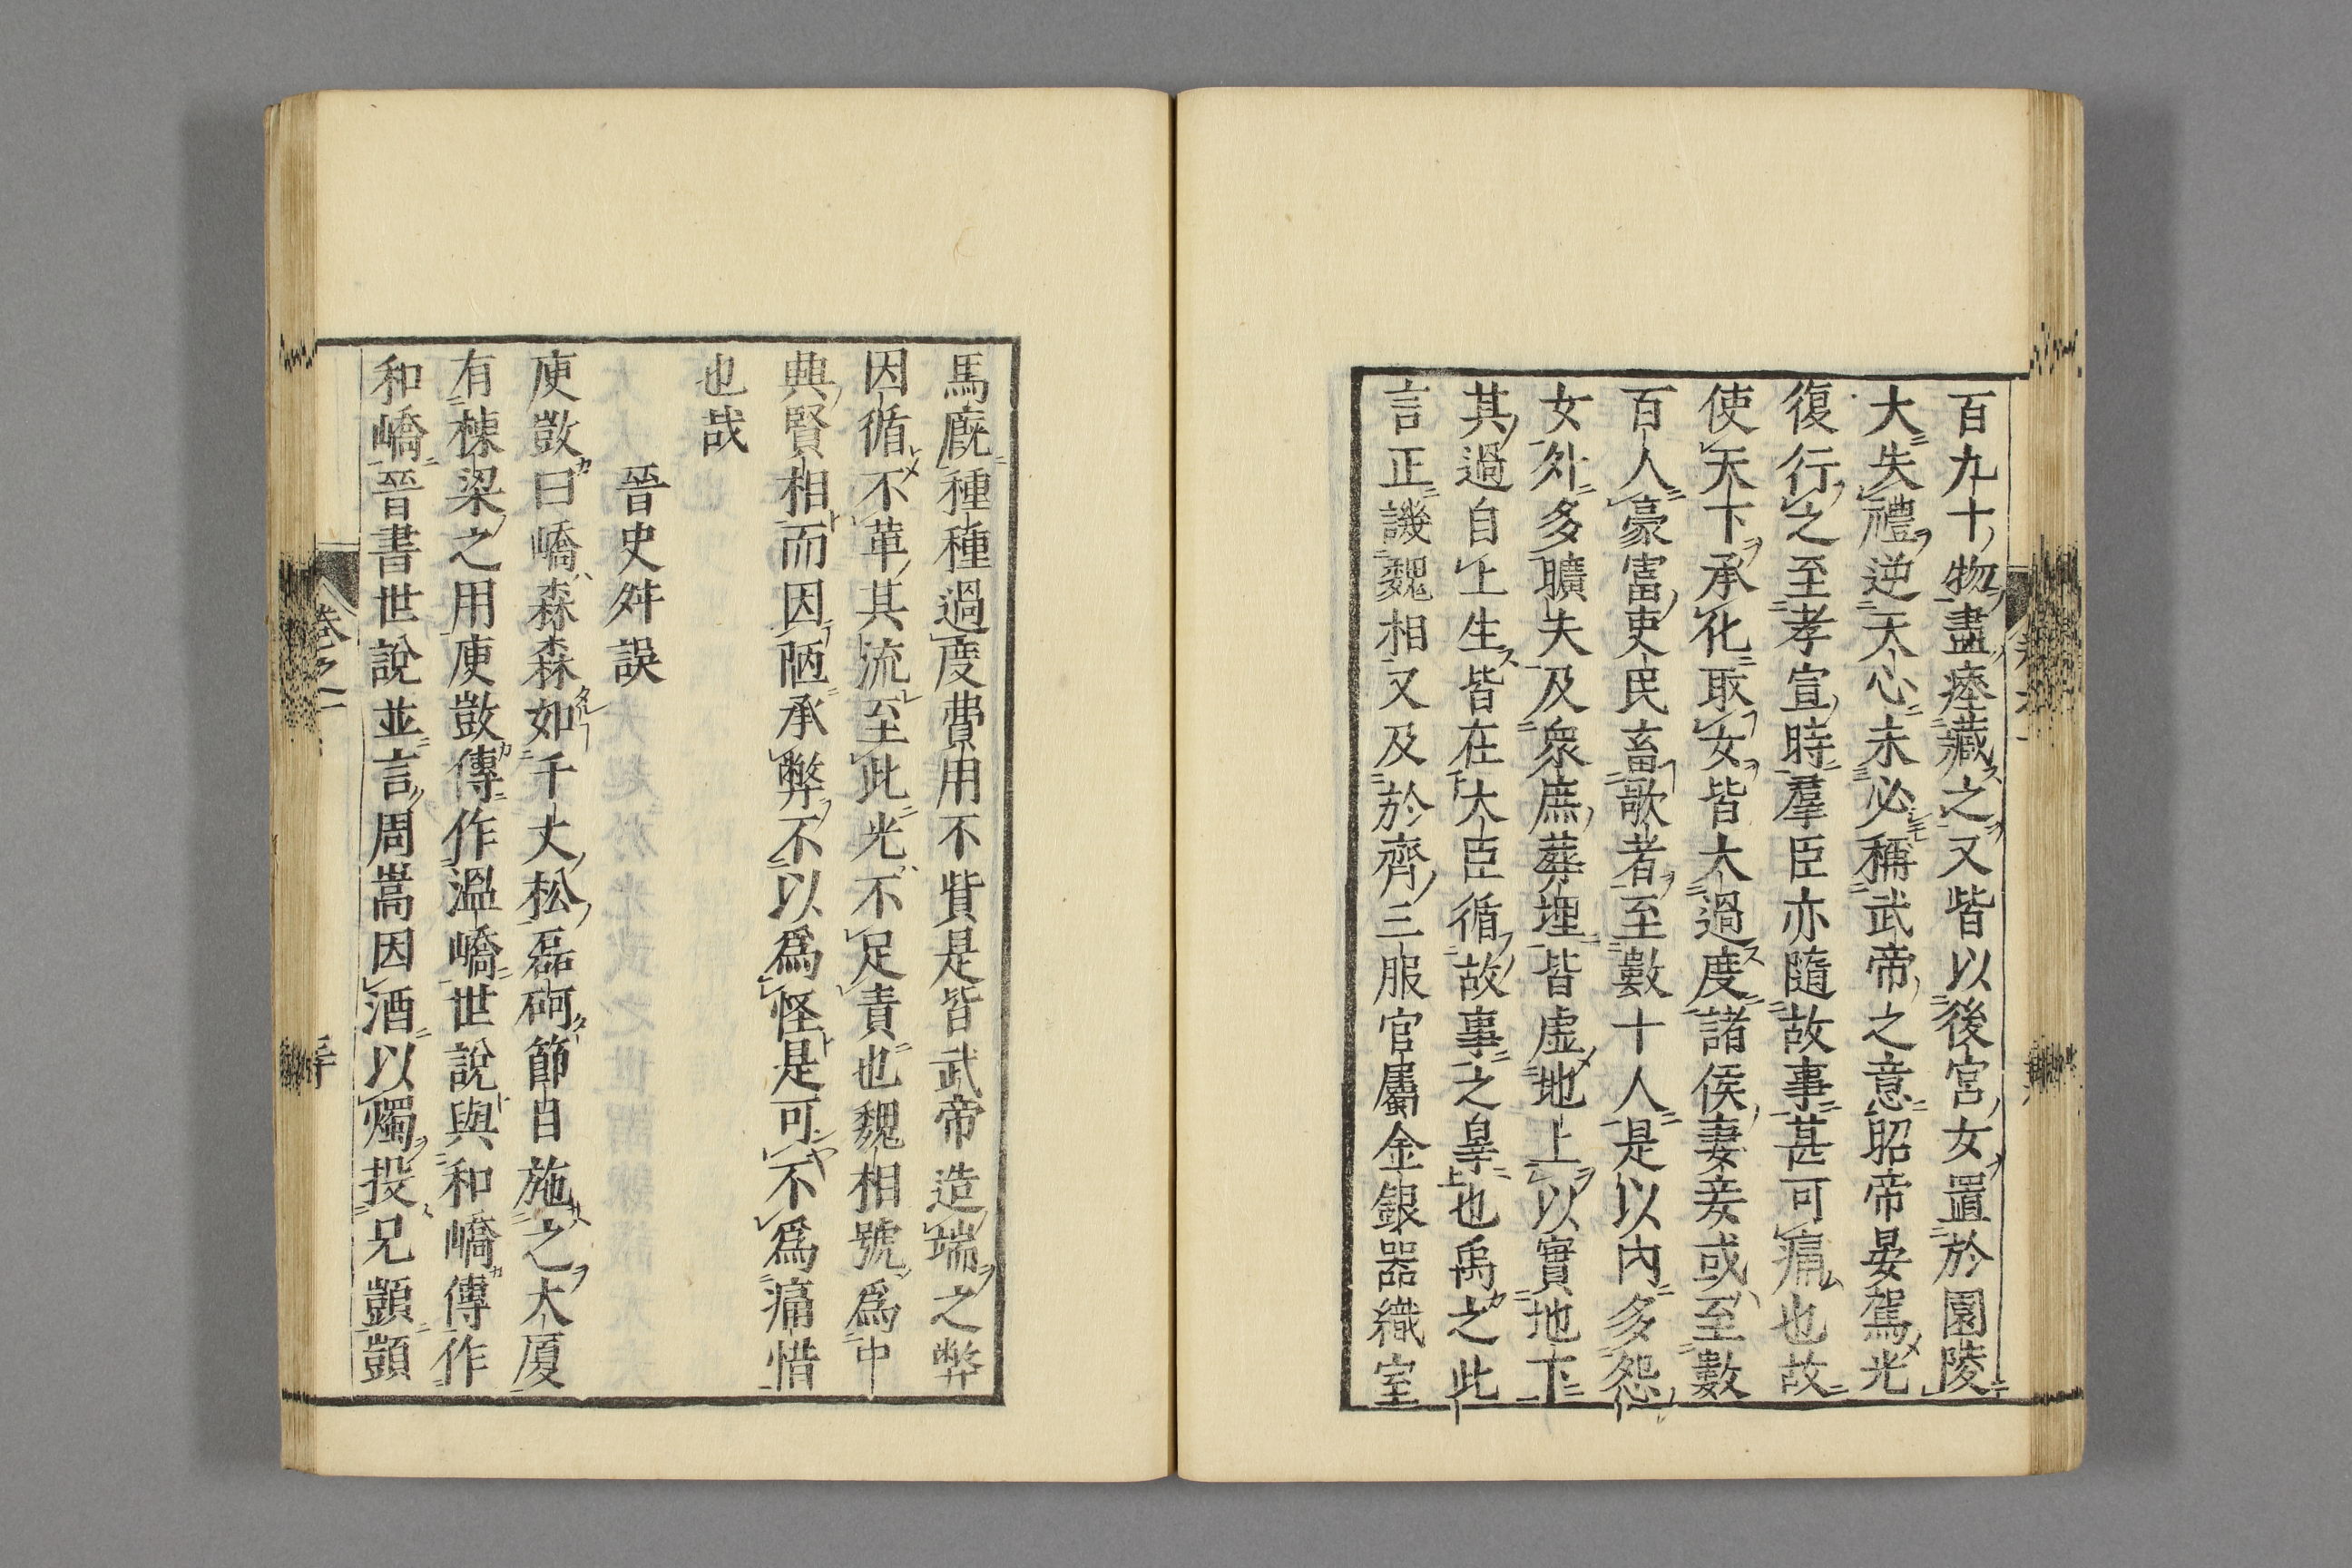 百九十物盡瘞藏之又皆以後宮女置於園陵
大失禮逆天心未必稱武帝之意昭帝晏駕光
復行之至孝宣時羣臣亦隨故事甚可痛也故
使天下承化取女皆大過度諸侯妻妾或至數
百人豪富吏民畜歌者至數十人是以內多怨
女外多曠失及衆庶葬埋皆虛地上以實地下
其過自上生皆在大臣循故事之辠也禹之此
言正譏魏相又及於齊三服官屬金銀器織室
馬廐種種過度費用不貲是皆武帝造端之弊
因循不革其流至此光不足責也魏相號爲中
典賢相而因陋承弊不以爲怪是可不爲痛惜
也哉
晉史舛誤
庾敳曰嶠森森如千丈松磊砢節目施之大厦
有棟梁之用庾敳傳作溫嶠世說與和嶠傳作
和嶠晉書世說並言周嵩因酒以燭投兄顗顗
卷之二